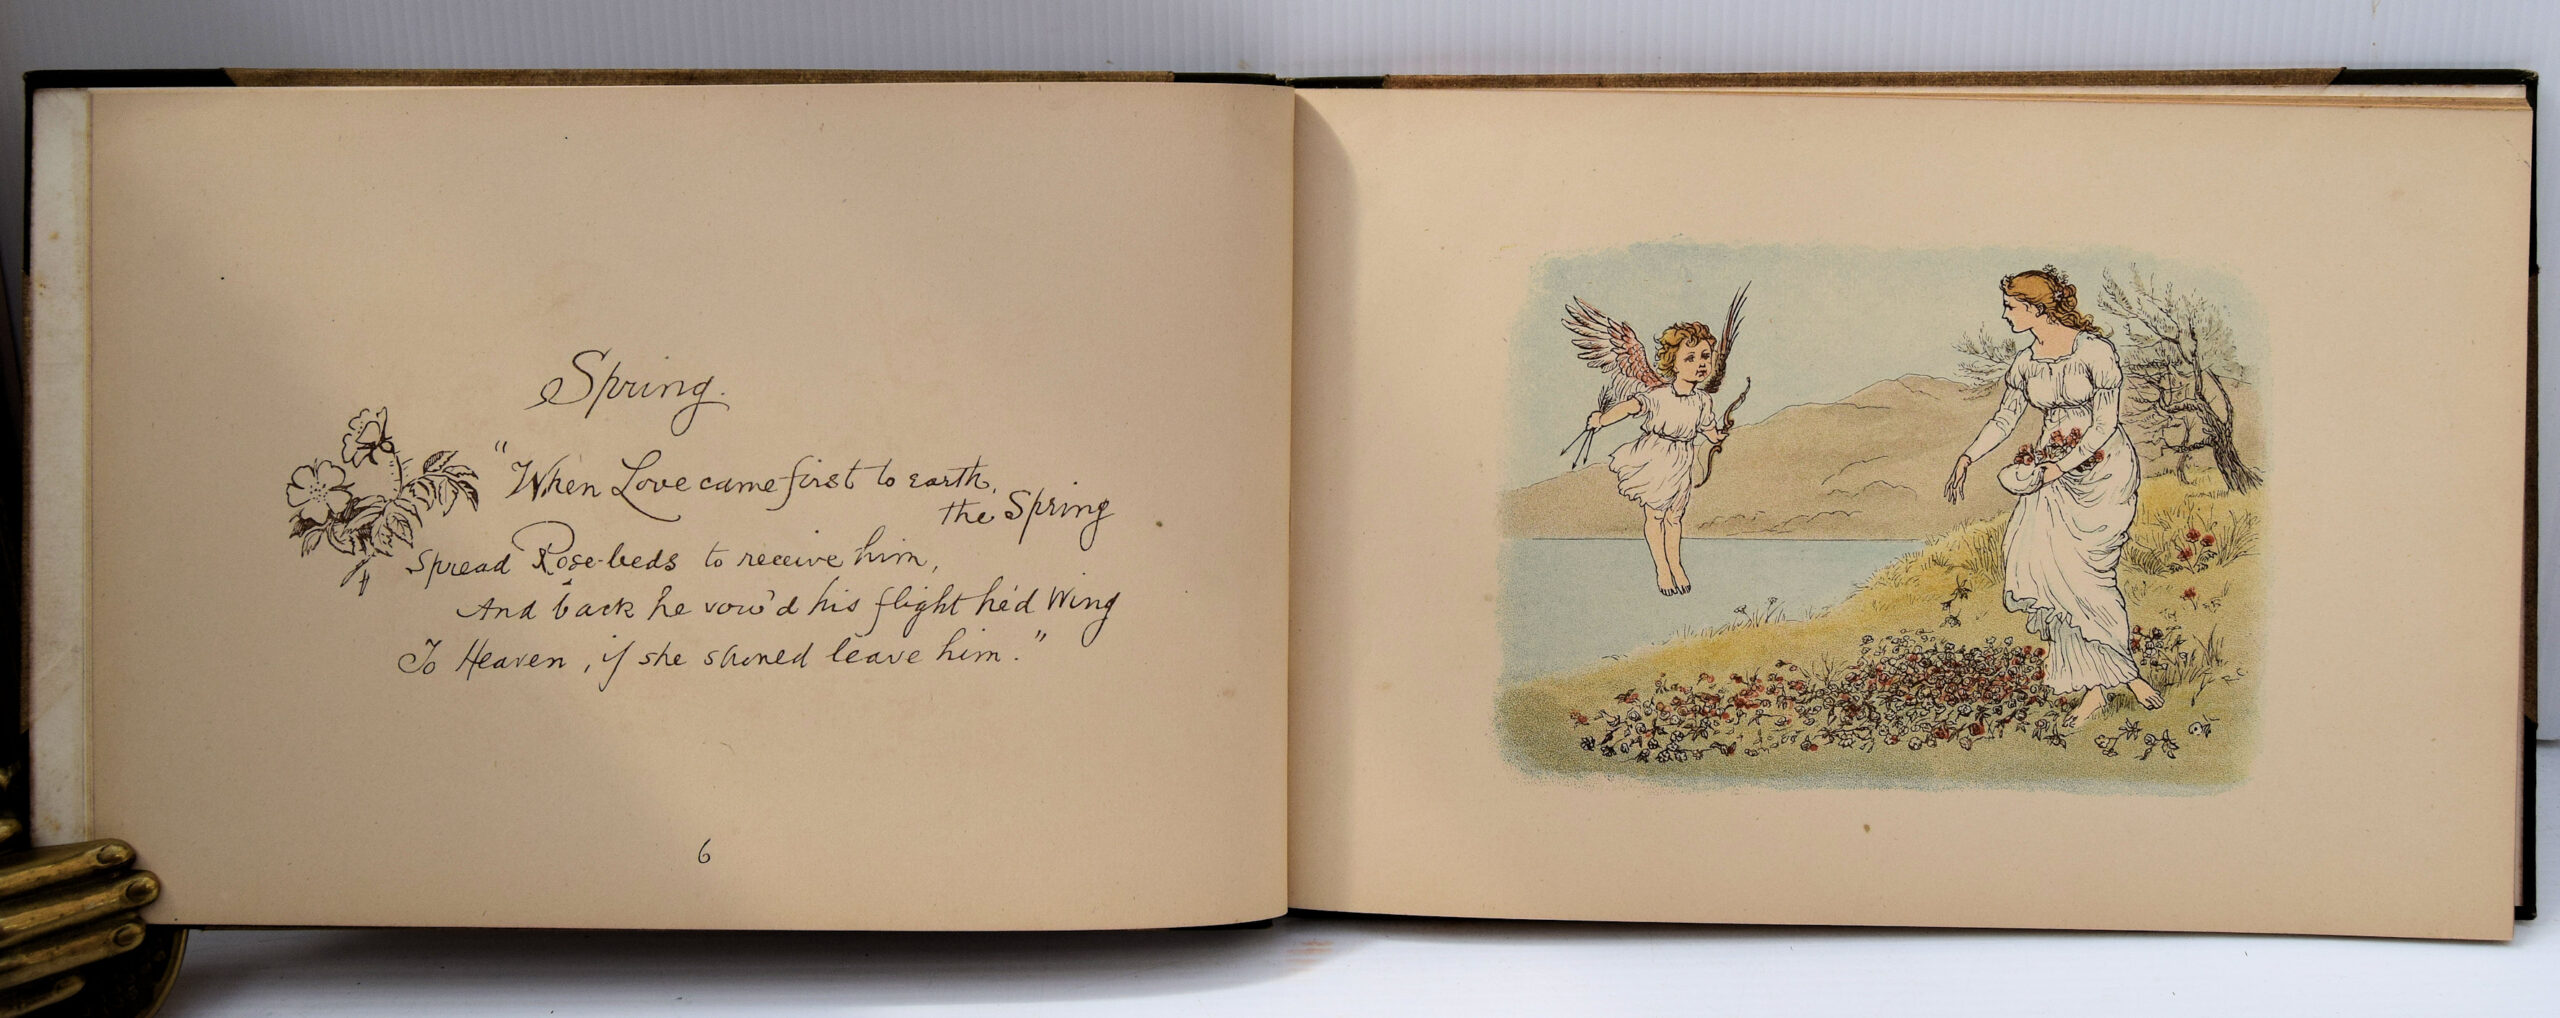 Spring.
"When Love came first to earth,
the Spring
Spread Rose-beds to receive him,
And back he vow'd his flight he'd Wing
To Heaven, if she should leave him."
6
R.C.